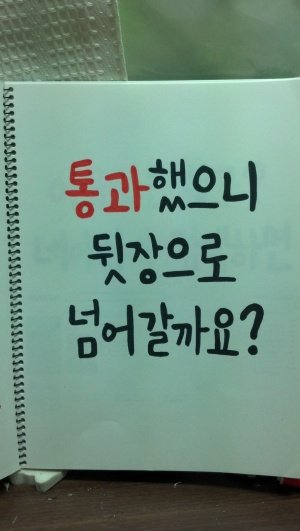 통과했으니
뒷장으로
넘어갈까요?